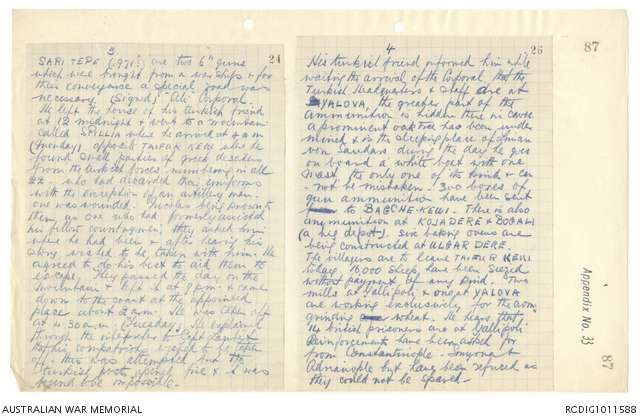 3
24
SARI TEPE (971.) are two 6" guns
which were brought from a war ships & for
their conveyance a special road was
necessary. (Signed) Ali Corporal.
He left the house of his turkish friend
at 12 midnight & went to a mountain
called SPILLIA where he arrived at 4 am
(Monday) opposite TAIFUR KEUI where he
found small parties of greek deserters
from the turkish forces numbering in all
22 who had discarded their uniforms
with the exception of an artillery man
one was wounded. being known to
them as one who had formerly assisted
his fellow countrymen; they asked him
where he had been & after hearing his
story wished to be taken with him. He
agreed to do his best to aid them to
escape. They passed the day on the
Mountain & left it at 9 pm & came
down to the coast at the appointed
place about 2 am. He was taken off
at 4.30 am (Tuesday). He explained
through the interpreter to Capt
that his compatriots wished to be taken
off & this was attempted but the
turkish post opened fire & it was
found to be impossible.
4
26
His turkish friend informed him while
waiting the arrival of the Corporal, that the
Turkish Headquarters & Staff are at
YALOVA, the greater part of the
ammunition is hidden there in caves
A prominent oak tree has been under
mined & is the sleeping place of Liman
von Sandars during the day he goes
on board a white boat with one
mast, the only one of the kind & can
not be mistaken. 300 boxes of
gun ammunition have been sent
to BAGCHE-KEUI. There is also
ammunition at KOJADERE & BOGALI
(a big depot). Six baking ovens are
being constructed at ULGAR DERE.
The villagers are to leave TAIFUR KEUI
today. 16,000 sheep have been seized
without payment of any kind. Two
mills at Gallipoli & one at YALOVA
are working exclusively for the army
grinding wheat. He hears that
14 british prisoners are at Gallipoli
Reinforcements have been asked for
from Constantinople. Smyrna &
Adrianople but have been refused as
they could not be spared.
87
Appendix No. 33
87
AUSTRALIAN WAR MEMORIAL
RCDIG1011588